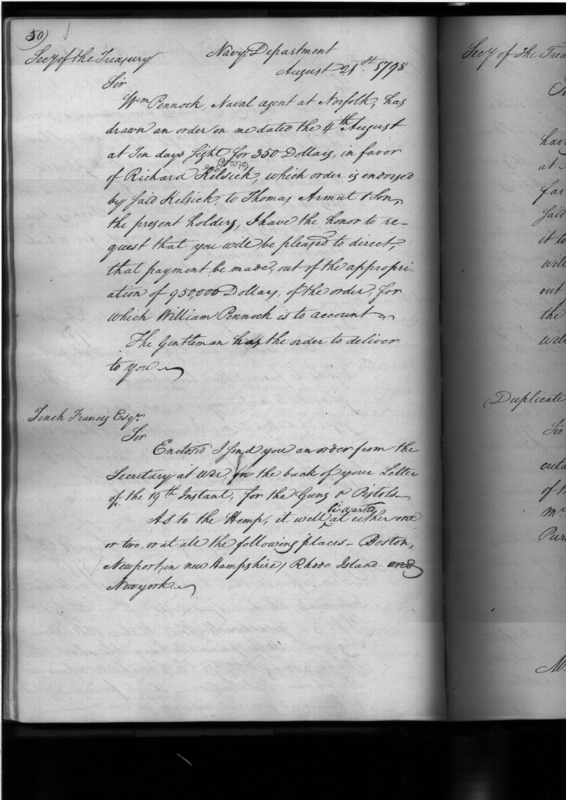 50)
Secy of the Treasury
Navy Department
August 21st 1798
Sir
Wm Pennock, Naval agent at Norfolk, has
drawn an order on me dated the 4th August
at Ten days sight for 350 Dollars, in favor
of Richard Kelsick, which order is endorsed
by said Kelsick, to Thomas Armat & Son
the present holders, I have the honor to re-
quest that you will be pleased to direct,
that payment be made, out of the appropri-
ation of 950,000 Dollars, of the order, for
which William Pennock is to account
The Gentleman has the order to deliver
to you
Tench Francis Esqr
Sir
Enclosed I send you an order from the
Secretary at War, on the back of your Letter
of the 19th Instant, for the Guns & Pistols
As to the Hemp, it will be wanted at either one
or two, or at all the following places - Boston,
(Newport, in new Hampshire) Rhode Island and
Newyork
Secy of the Trea
hav
at
far
said
it to
will
out
the
will
(Duplicate
Sir
creta
of th
Mr
Pur